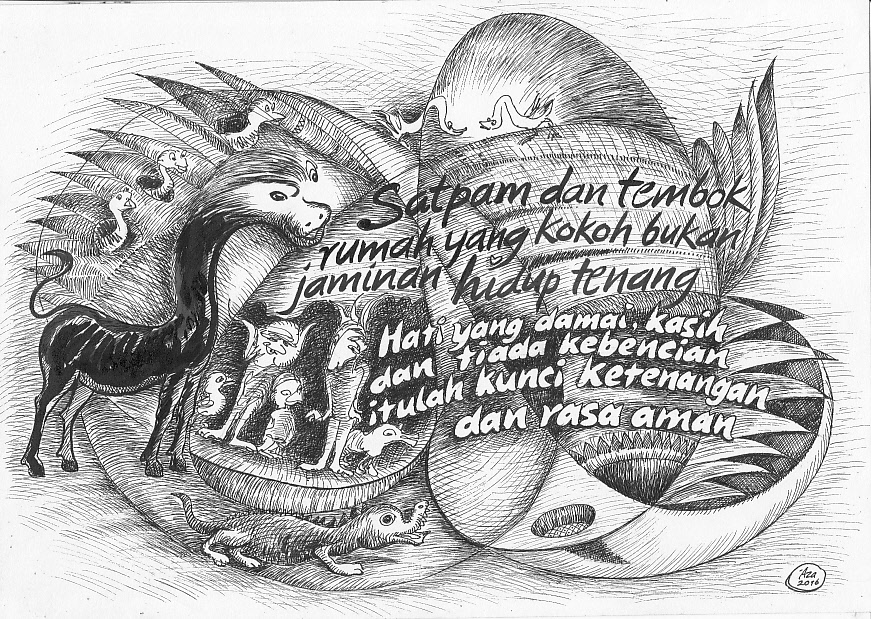 Satpam dan tembok
rumah yang kokoh bukan
jaminan hidup tenang
Hati yang damai, kasih
dan tiada kebencian
itulah kunci ketenangan
dan rasa aman
'Aza
2016